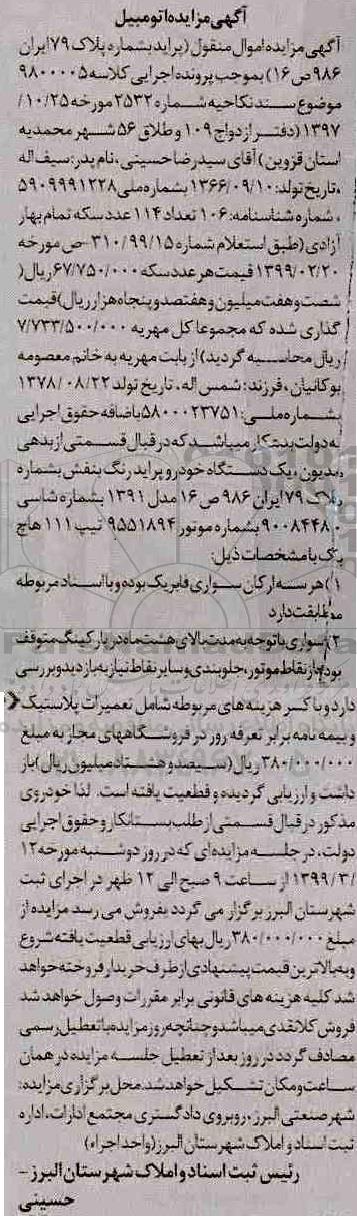 آگهی مزایده اتومبیل
آگهی مزایده اموال منقول (پراید بشماره پلاک ۷۹ ایران
۹۸۶ ص ۱۶) بموجب پرونده اجرایی کلاسه ۹۸۰۰۰۰۵
موضوع سند نکاحیه شماره ۲۵۳۲ مورخه ۱۰/۲۵/
۱۳۹۷ (دفتر ازدواج ۱۰۹ و طلاق ۵۶ شهر محمدیه
استان قزوین) آقای سیدرضا حسینی، نام پدر: سیف اله
،تاریخ تولد: ۱۳۶۶/۰۹/۱۰ بشماره ملی ۵۹۰۹۹۹۱۲۲۸
، شماره شناسنامه: ۱۰۶ تعداد ۱۱۴ عدد سکه تمام بهار
آزادی (طبق استعلام شماره ۳۱۰/۹۹/۱۵-ص مورخه
۱۳۹۹/۰۲/۲۰ قیمت هر عدد سکه ۶۷/۷۵۰/۰۰۰ ریال(
شصت و هفت میلیون و هفتصد و پنجاه هزار ریال) قیمت
گذاری شده که مجموعا کل مهریه ۷/۷۳۳/۵۰۰/۰۰۰
ریال محاسبه گردید) از بابت مهریه به خانم معصومه
بوکانیان، فرزند: شمس اله، تاریخ تولد ۱۳۷۸/۰۸/۲۲
بشماره ملی: ۵۸۰۰۰۲۳۷۵۱ باضافه حقوق اجرایی
به دولت بدهکار میباشد که در قبال قسمتی از بدهی
مدیون، یک دستگاه خودرو پراید رنگ بنفش بشماره
پلاک ۷۹ ایران ۹۸۶ ص ۱۶ مدل ۱۳۹۱ بشماره شاسی
۹۰۰۸۴۴۸۰ بشماره موتور ۹۵۵۱۸۹۴ تیپ ۱۱۱ هاچ
بک با مشخصات ذیل:
۱) هر سه ارکان سواری فابریک بوده و با اسناد مربوطه
مطابقت دارد
۲) سواری با توجه به مدت بالای هشت ماه در پارکینگ متوقف
بوده از نقاط موتور، جلوبندی و سایر نقاط نیاز به بازدید و بررسی
دارد و با کسر هزینه های مربوطه شامل تعمیرات پلاستیک
و بیمه نامه برابر تعرفه روز در فروشگاههای مجاز به مبلغ
۳۸۰/۰۰۰/۰۰۰ ریال (سیصد و هشتاد میلیون ریال) باز
داشت و ارزیابی گردیده و قطعیت یافته است. لذا خودروی
مذکور در قبال قسمتی از طلب بستانکار و حقوق اجرایی
دولت، در جلسه مزایده ای که در روز دوشنبه مورخه ۱۲
/۱۳۹۹/۳ از ساعت ۹ صبح الی ۱۲ ظهر در اجرای ثبت
شهرستان البرز برگزار می گردد بفروش می رسد مزایده از
مبلغ ۳۸۰/۰۰۰/۰۰۰ ریال بهای ارزیابی قطعیت یافته شروع
و به بالاترین قیمت پیشنهادی از طرف خریدار فروخته خواهد
شد کلیه هزینه های قانونی برابر مقررات وصول خواهد شد
فروش کلا نقدی میباشد و چنانچه روز مزایده با تعطیل رسمی
مصادف گردد در روز بعد از تعطیل جلسه مزایده در همان
ساعت و مکان تشکیل خواهد شد. محل برگزاری مزایده:
شهر صنعتی البرز، روبروی دادگستری مجتمع ادارات، اداره
ثبت اسناد و املاک شهرستان البرز (واحد اجراء)
رئیس ثبت اسناد و املاک شهرستان البرز -
حسینی